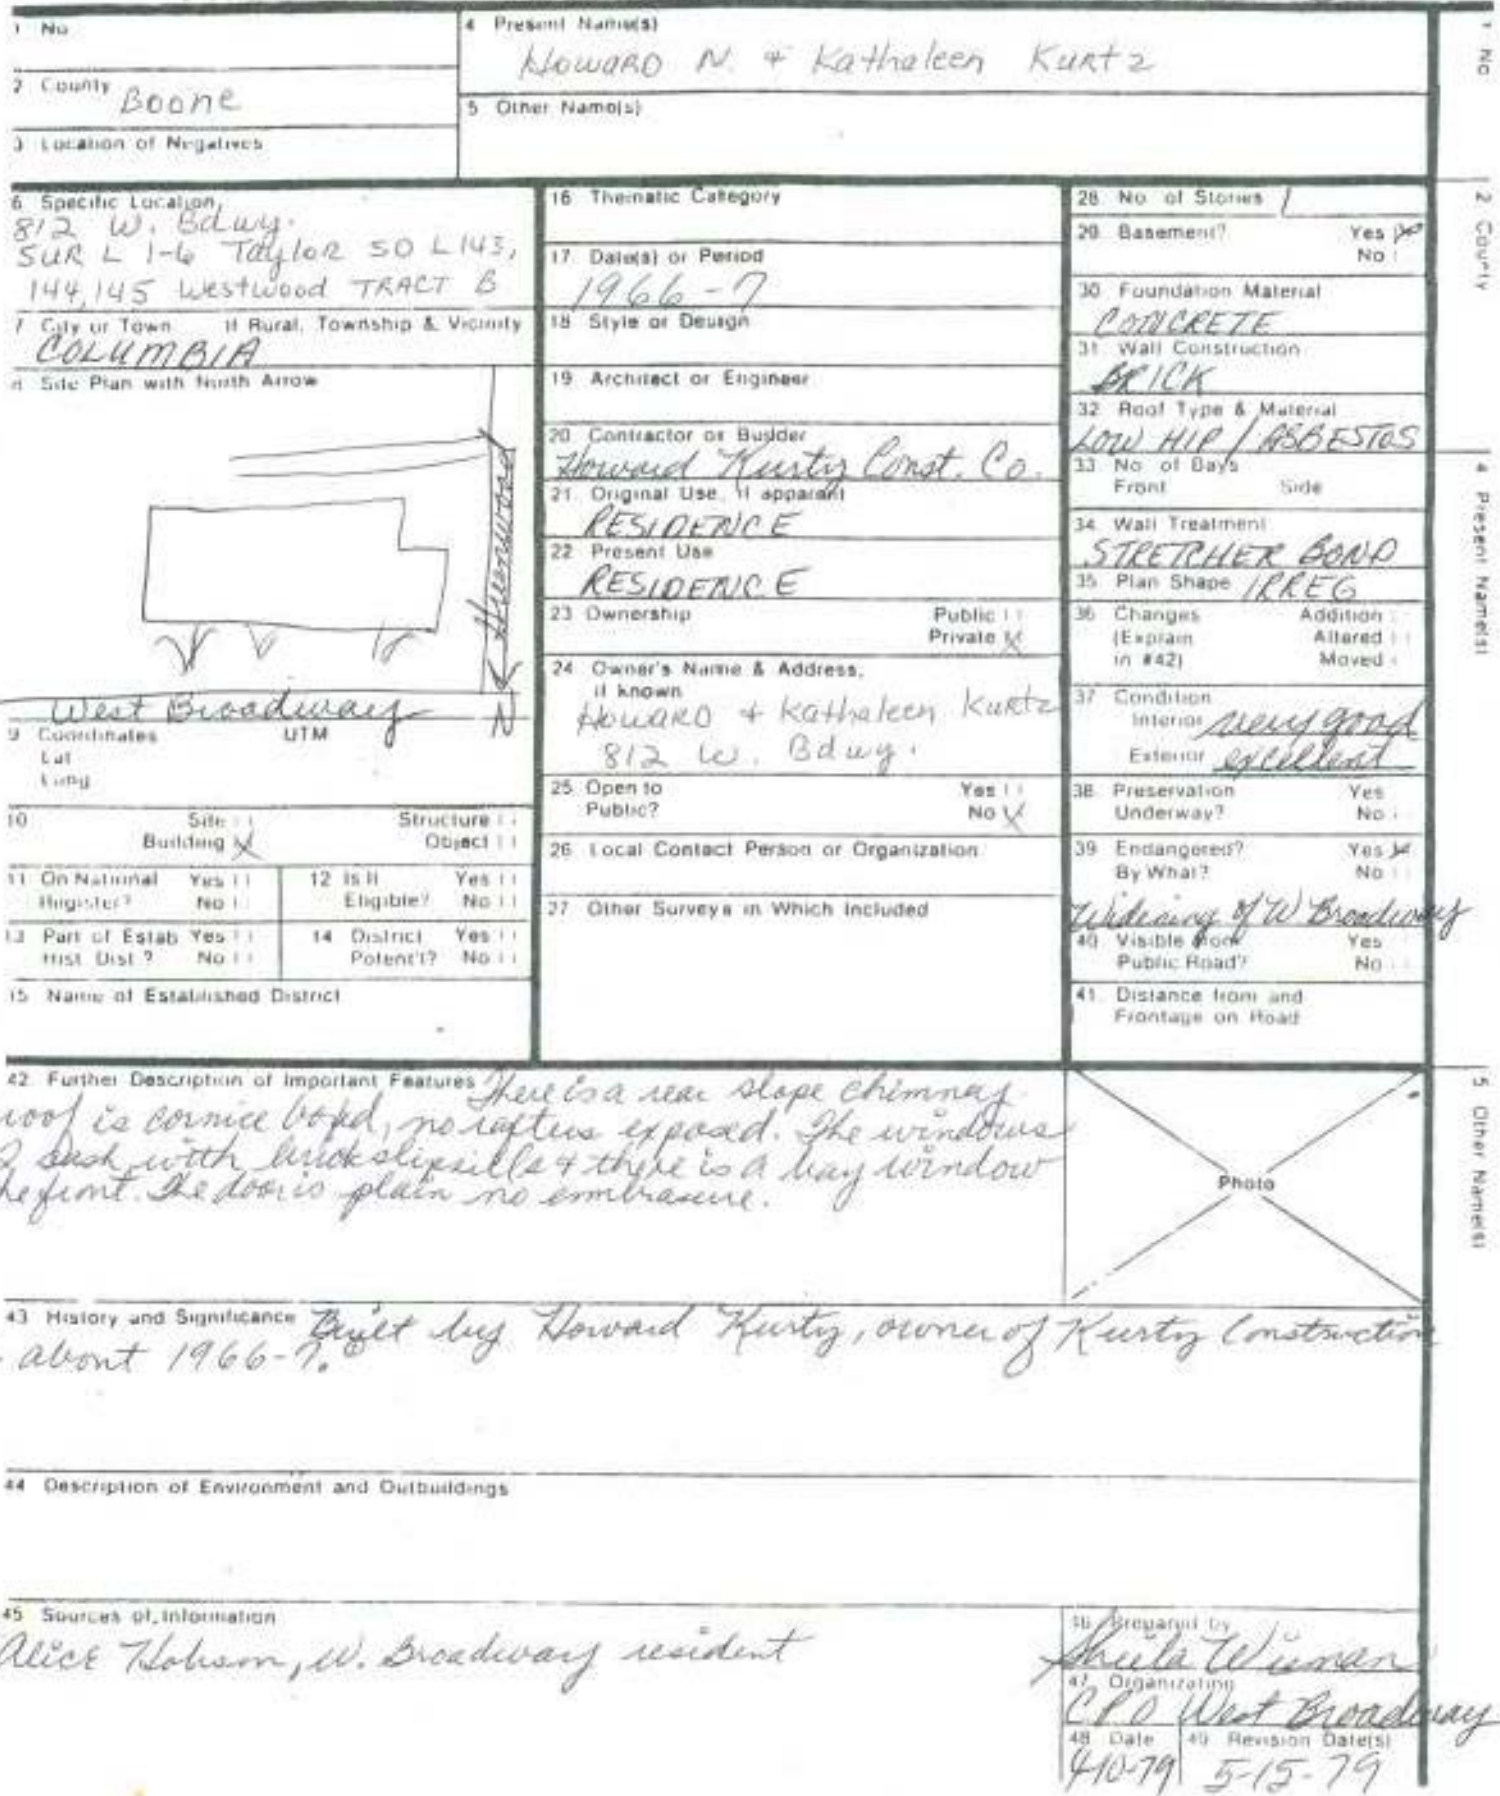 1 No
4 Present Name(s)
Howard N. + Kathaleen Kurtz
2 County
Boone
5 Other Name(s)
3 Location of Negatives
6 Specific Location
812 W. Bdwy.
SUR L 1-6 Taylor SD L143,
144,145 Westwood TRACT B
7 City or Town If Rural, Township & Vicinity
COLUMBIA
8 Site Plan with North Arrow
West Broadway
N
9 Coordinates UTM
Lat
Long
10 Site Structure
Building X Object
11 On National Register? Yes No
12 Is It Eligible? Yes No
13 Part of Estab Hist. Dist.? Yes No
14 District Potent'l? Yes No
15 Name of Established District
16 Thematic Category
17 Date(s) or Period
1966-7
18 Style or Design
19 Architect or Engineer
20 Contractor or Builder
Howard Kurtz Const. Co.
21. Original Use, if apparent
RESIDENCE
22 Present Use
RESIDENCE
23 Ownership Public
Private X
24 Owner's Name & Address,
if known
Howard + Kathaleen Kurtz
812 W. Bdwy.
25 Open to Yes
Public? No X
26 Local Contact Person or Organization
27 Other Surveys in Which Included
28 No. of Stories 1
29 Basement? Yes X
No
30 Foundation Material
CONCRETE
31 Wall Construction
BRICK
32 Roof Type & Material
LOW HIP / ASBESTOS
33 No. of Bays
Front Side
34 Wall Treatment
STRETCHER BOND
35 Plan Shape IRREG
36 Changes Addition
(Explain Altered
in #42) Moved
37 Condition
Interior very good
Exterior excellent
38 Preservation Yes
Underway? No
39 Endangered? Yes X
By What? No
Widening of W Broadway
40 Visible from Yes
Public Road? No
41 Distance from and
Frontage on Road
42 Further Description of Important Features There is a rear slope chimney
roof is cornice boxed, no rafters exposed. The windows
sash with brick slipsills & there is a bay window
front. The door is plain no embrasure.
Photo
43 History and Significance Built by Howard Kurtz, owner of Kurtz Construction
about 1966-7.
44 Description of Environment and Outbuildings
45 Sources of Information
Alice Hobson, W. Broadway resident
46 Prepared by
Sheila Wiman
47 Organization
CPO West Broadway
48 Date
4-10-79
49 Revision Date(s)
5-15-79
1 No
2 County
4 Present Name(s)
5 Other Name(s)